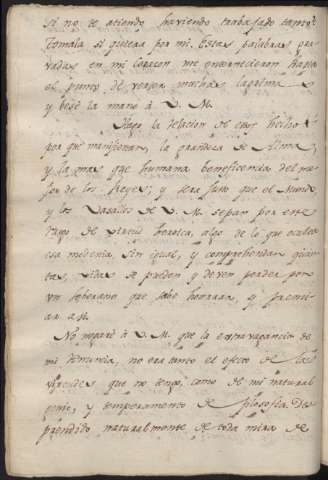 si no te atiendo haviendo trabajado tanto?
Tomala si quieras por mi. Estas palabras gra-
vadas en mi corazon me enternecieron hasta
el punto de verter muchas lagrimas
y besé la mano à V. M.
Hago la relacion de este hecho
por que manifiestan, la grandeza de Alma,
y la mas que humana beneficencia del me-
jor de los Reyes; y sera justo que el Mundo
y los Vasallos de V. M. sepan por este
rasgo de virtud heroica, algo de lo que oculta
esa modestia, sin igual, y comprehendan quan-
tas, vidas se pueden y deven perder por
un soberano que sabe honrrar, y premi-
ar a.
No ignoro à V. M. que la extravagancia de
mi renuncia, no era tanto el efecto de las
virtudes que no tengo, como de mi natural
genio, y temperamento de filosofia. Des-
prendido naturalmente de toda mira de